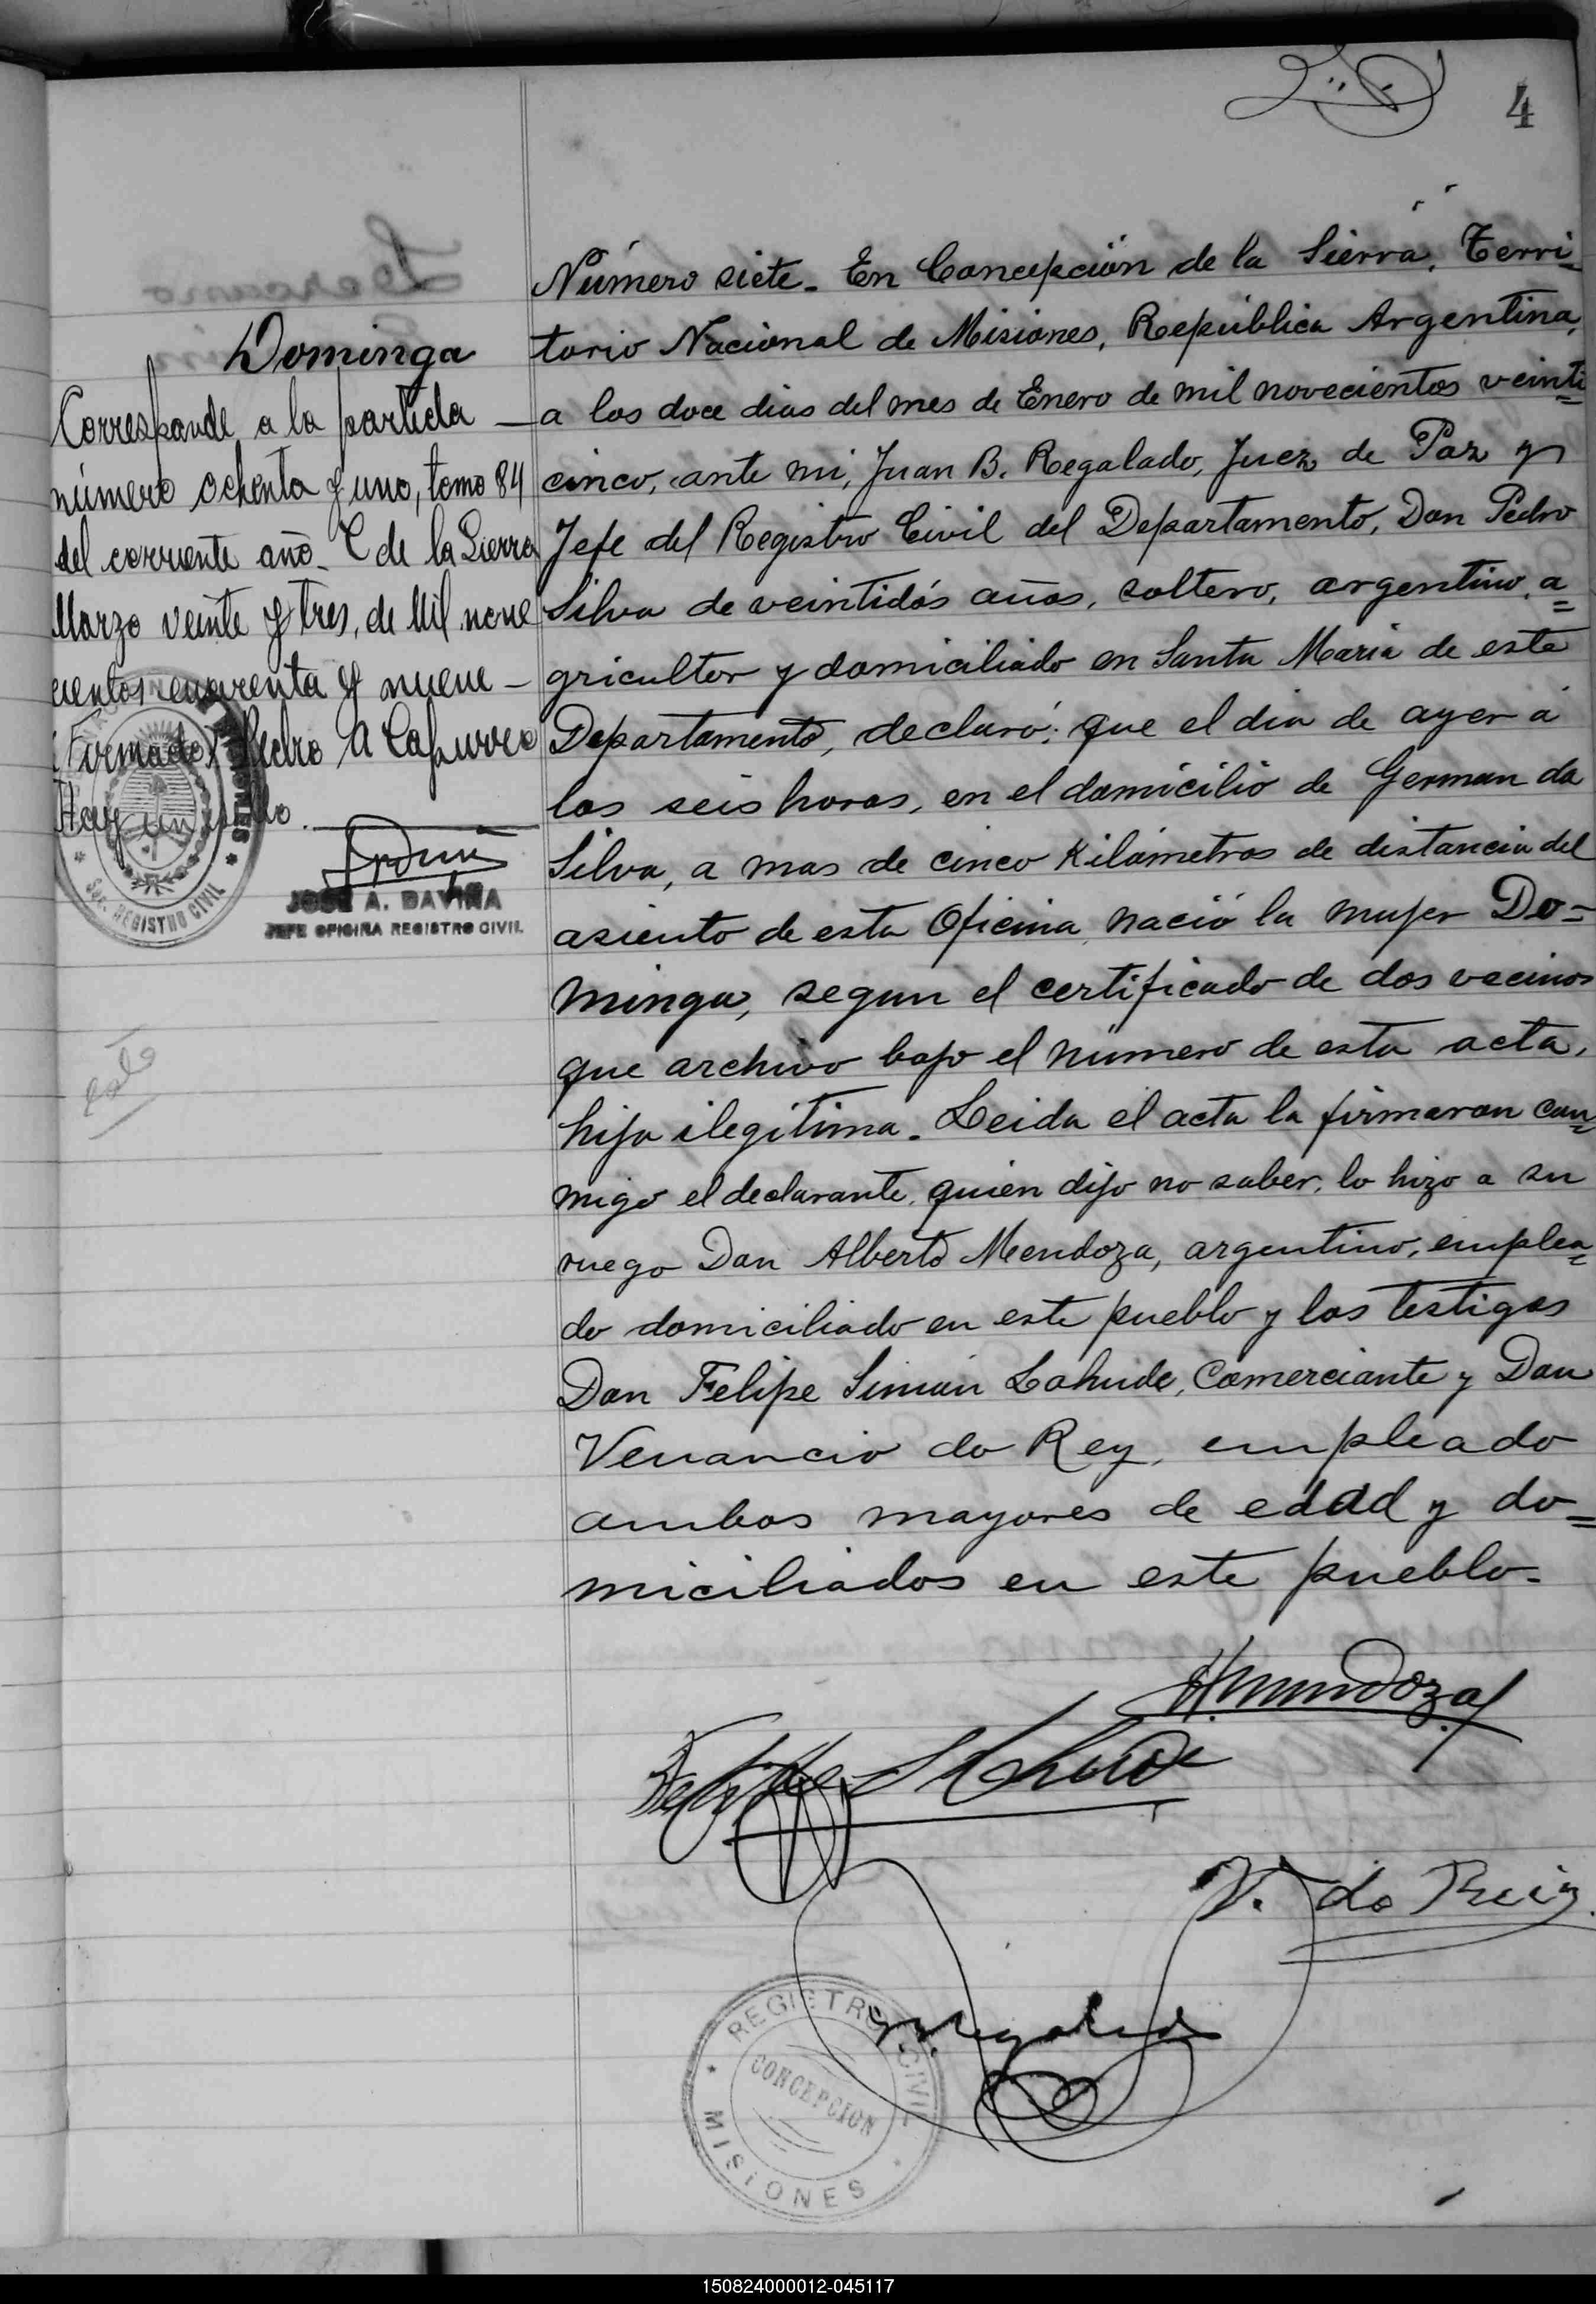 4
Dominga
Corresponde a la partida
número ochenta y uno, tomo 84
del corriente año. C de la Sierra
Marzo veinte y tres, de Mil nove
cientos cuarenta y nueve -
(Firmado) Pedro A
Hay un sello.
JOSE A. DAVIÑA
JEFE OFICINA REGISTRO CIVIL
REGISTRO CIVIL
Número siete. En Concepción de la Sierra, Terri-
torio Nacional de Misiones, República Argentina,
a los doce dias del mes de Enero de mil novecientos veinti=
cinco, ante mi, Juan B. Regalado, Juez de Paz y
Jefe del Registro Civil del Departamento, Don Pedro
Silva de veintidós años, soltero, argentino, a=
gricultor y domiciliado en Santa María de este
Departamento, declaró: que el dia de ayer a
las seis horas, en el domicilio de German da
Silva, a mas de cinco Kilómetros de distancia del
asiento de esta Oficina, nació la mujer Do=
minga, segun el certificado de dos vecinos
que archivo bajo el número de esta acta,
hija ilegítima. Leida el acta la firmaron con=
migo el declarante, quien dijo no saber, lo hizo a su
ruego Don Alberto Mendoza, argentino, emplea=
do domiciliado en este pueblo y los testigos
Don Felipe Simón Lahude, Comerciante y Don
Venancio do Rey, empleado
ambos mayores de edad y do=
miciliados en este pueblo.
A. Mendoza
Felipe S Lahude
V. do Reiz
REGISTRO CIVIL
CONCEPCION
MISIONES
150824000012-045117